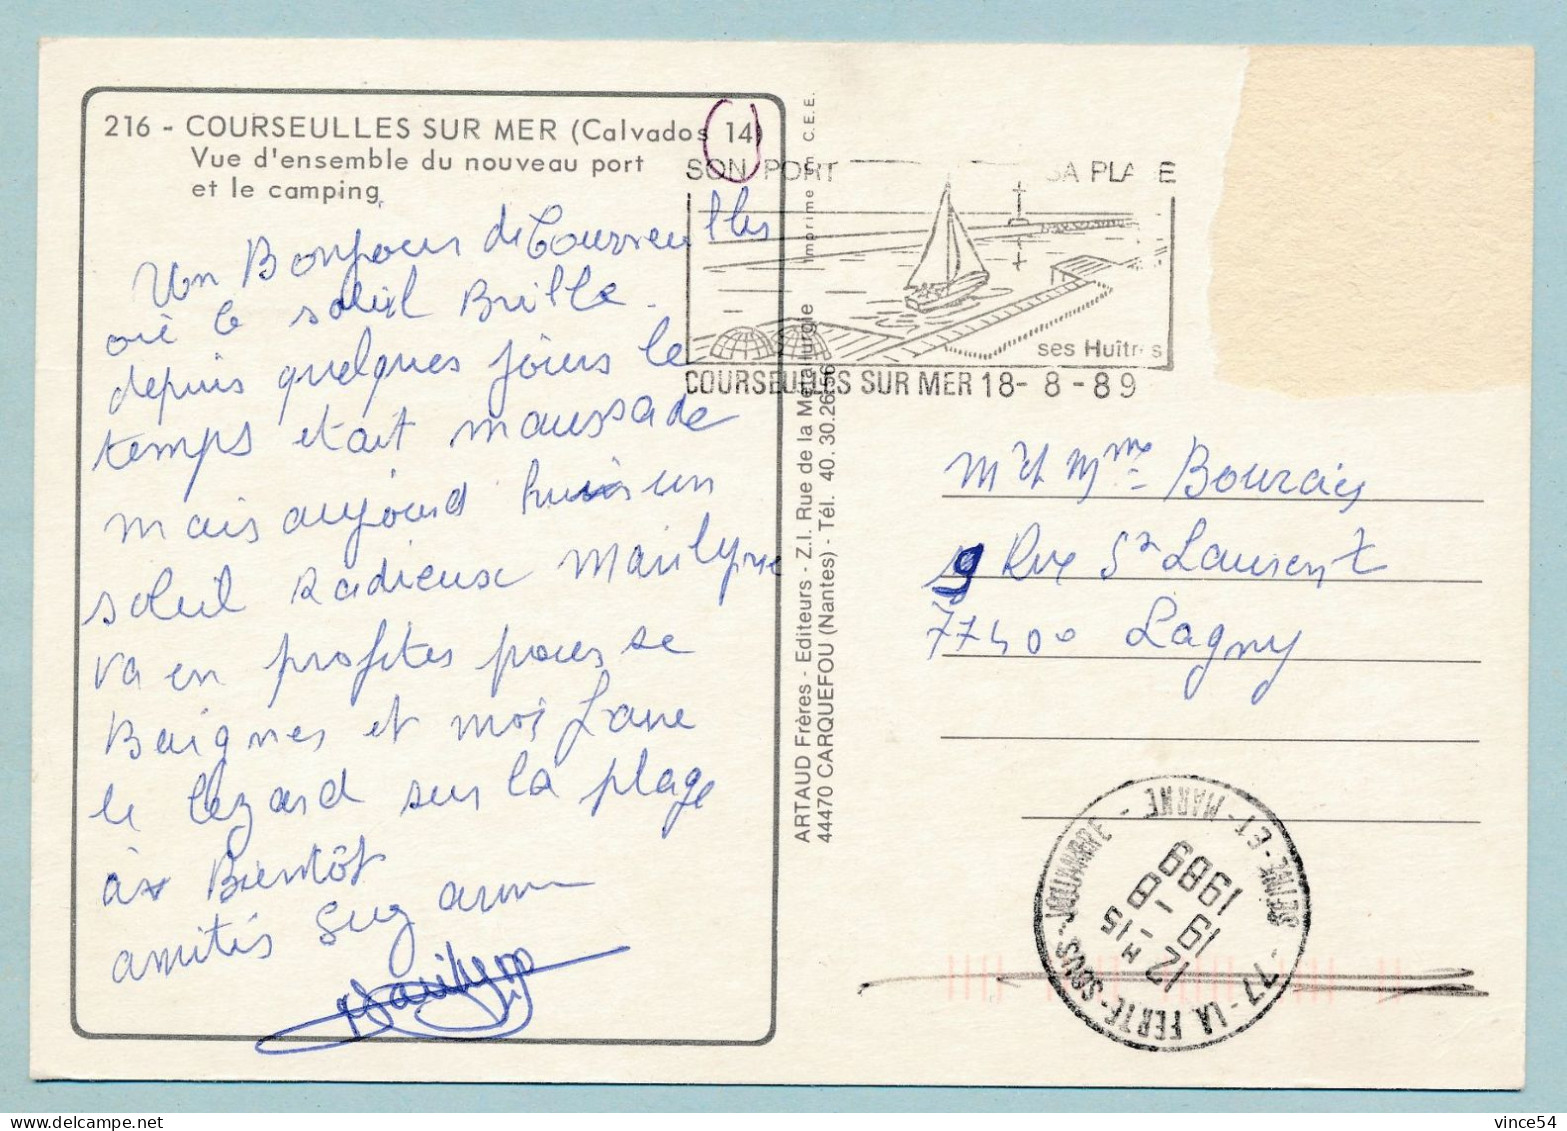 216 - COURSEULLES SUR MER (Calvados 14)
Vue d'ensemble du nouveau port
et le camping
Un Bonjour de Courseulles
où le soleil Brille.
depuis quelques jours le
temps etait maussade
mais aujourd hui un
soleil radieux Marilyne
va en profiter pour se
Baigner et moi faire
le lezard sur la plage
à Bientôt
amitiés Suzanne
Marilyne
ARTAUD Frères - Editeurs - Z.I. Rue de la Métallurgie
44470 CARQUEFOU (Nantes) - Tél. 40.30.26.56
Imprimé C.E.E.
SON PORT SA PLA E
ses Huîtr s
COURSEULLES SUR MER 18-8-89
M et Mme
9 Rue St Laurent
77400 Lagny
77 - LA FERTE-SOUS-JOUARRE -
SEINE-ET-MARNE -
12 H 15
19 - 8
1989
vince54